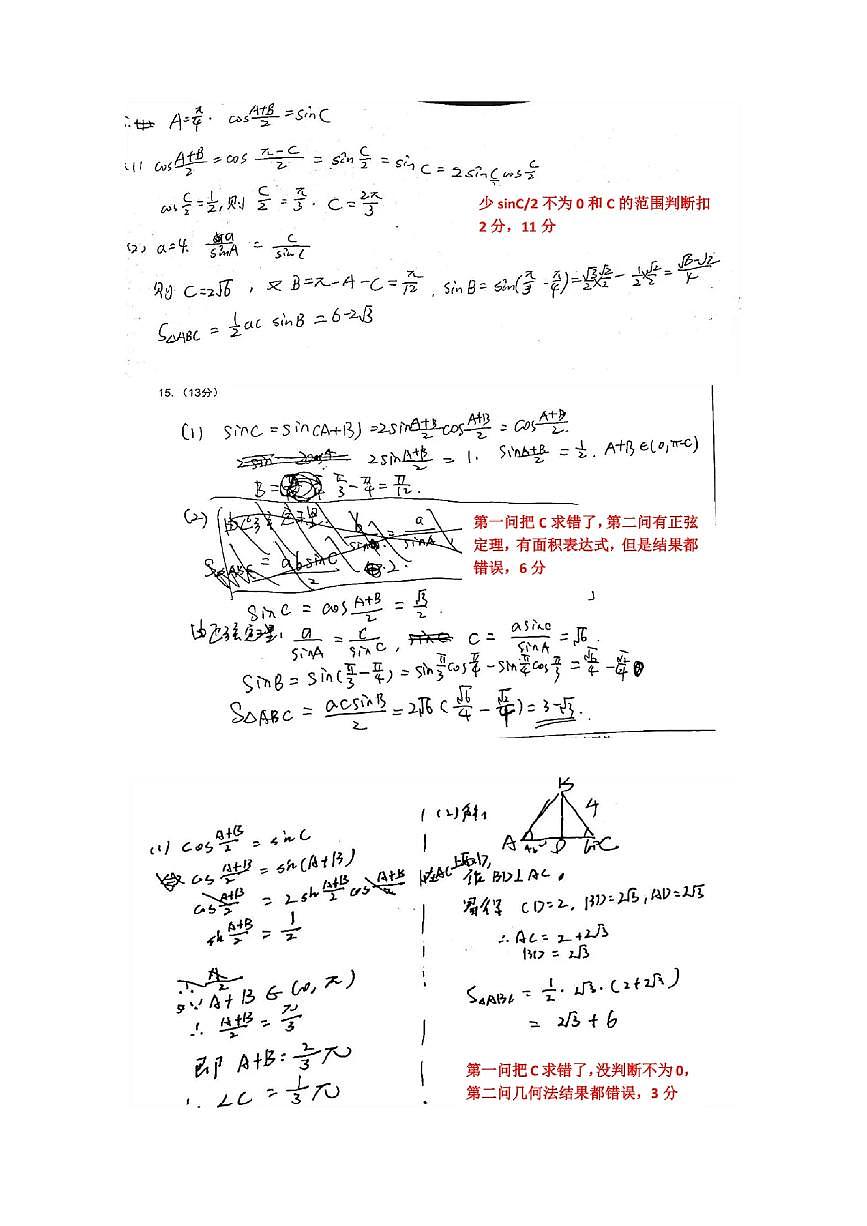 A=π/4. cos A+B/2 = sinC
(1) cos A+B/2 = cos π-C/2 = sin C/2 = sin C = 2 sin C/2 cos C/2
cos C/2 = 1/2, 则 C/2 = π/3. C = 2π/3
少 sinC/2 不为 0 和 C 的范围判断扣
2 分，11 分
(2) a=4. a/sinA = c/sinC
则 C=2√6 , 又 B=π-A-C=π/12 , sinB = sin(π/3 - π/4) = √3/2×√2/2 - 1/2×√2/2 = √6-√2/4
S△ABC = 1/2 ac sinB = 6-2√3
15. （13分）
(1) sinC = sin(A+B) = 2sin A+B/2 cos A+B/2 = cos A+B/2.
2sin A+B/2 = 1. sin A+B/2 = 1/2. A+B∈(0,π-C)
B= π/3 - π/4 = π/12.
(2)
第一问把 C 求错了，第二问有正弦
定理，有面积表达式，但是结果都
错误，6 分
sinC = cos A+B/2 = √3/2.
由正弦定理, a/sinA = c/sinC, C = asinC/sinA = √6.
sinB = sin(π/3 - π/4) = sin π/3 cos π/4 - sin π/4 cos π/3 = √6/4 - √2/4
S△ABC = acsinB/2 = 2√6 (√6/4 - √2/4) = 3-√3.
(1) cos A+B/2 = sinC
cos A+B/2 = sin(A+B)
cos A+B/2 = 2sin A+B/2 cos A+B/2
sin A+B/2 = 1/2
∵ A+B∈(0, π)
∴ A+B/2 = π/3
即 A+B = 2/3 π
∴ ∠C = 1/3 π
(2)解:
B
4
A D C
在AC上取D,
作 BD⊥AC.
易得 CD=2, BD=2√3, AD=2√3
∴ AC = 2+2√3
BD = 2√3
S△ABC = 1/2 · 2√3 · (2+2√3)
= 2√3+6
第一问把 C 求错了，没判断不为 0，
第二问几何法结果都错误，3 分